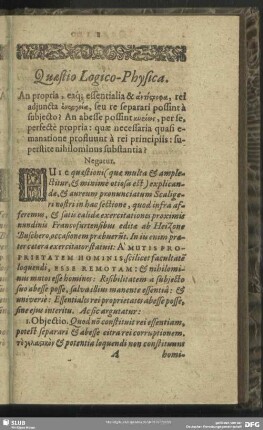 Quæstio Logico-Physica.
An propria, eaq; essentialia & ἀντίστροφα, vel
adjuncta, seu re separari possint à
subjecto? An abesse possint, per se,
perfectè propria: quæ necessaria quasi e-
manatione profluunt à rei principiis: su-
perstite nihilominus substantia?
Negatur.
questioni (que multa & ample-
ctitur, & minimè otiosa est) explican-
dæ, & aureum pronunciatum Scalige-
ri nostri in hac sectione, quod infra af-
feremus, & satis calida exercitationis proximis
nundinis Francfurtensibus edita ab Heizone
Buschero, occasionem præbuerunt. In iis enim præ-
ter cetera exercitator statuit: A MUTIS PRO-
PRIETATEM HOMINIS, scilicet facultatē
loquendi, ESSE REMOTAM: & nihilomi-
nus mutos esse homines: Risibilitatem à subjecto
suo abesse posse, salva illius manente essentiâ: &
universè: Essentiales rei proprietates abesse posse,
sine ejus interitu. Ac sic argutatur:
1. Objectio. Quod nō constituit rei essentiam,
potest separari & abesse citra rei corruptionem.
& potentia loquendi non constituunt
A homi-
SLUB
DFG